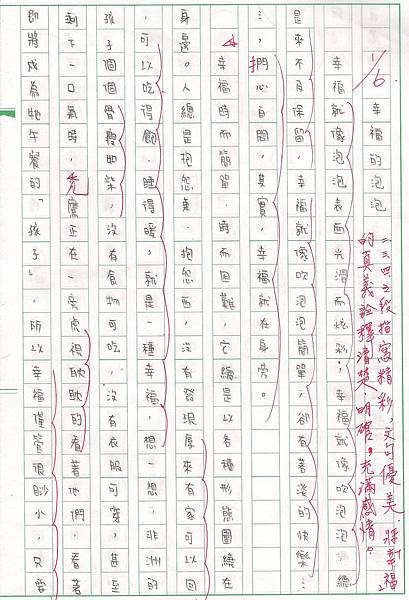 幸福的泡泡
幸福就像泡泡,表面光滑而炫彩;幸福就像吹泡泡,總
是來不及保留,幸福就像吹泡泡簡單,卻有著淡淡的快樂…
…,捫心自問,其實,幸福就在身旁。
幸福時而簡單,時而困難,它總是以各種形態圍繞在
身邊。人總是抱怨東、抱怨西,沒有發現原來有家可回
,可以吃得飽,睡得暖,就是一種幸福,想一想,非洲的
孩子個個骨瘦如柴,沒有食物可吃,沒有衣服可穿,甚至
剩下一口氣時,禿鷹正在一旁虎視眈眈的看著他們,看著
即將成為牠午餐的「孩子」,所以幸福僅管很渺小,只要
1/6
二三四之段描寫精彩,文句優美。將幸福
的真義詮釋清楚、明確。充滿感情。